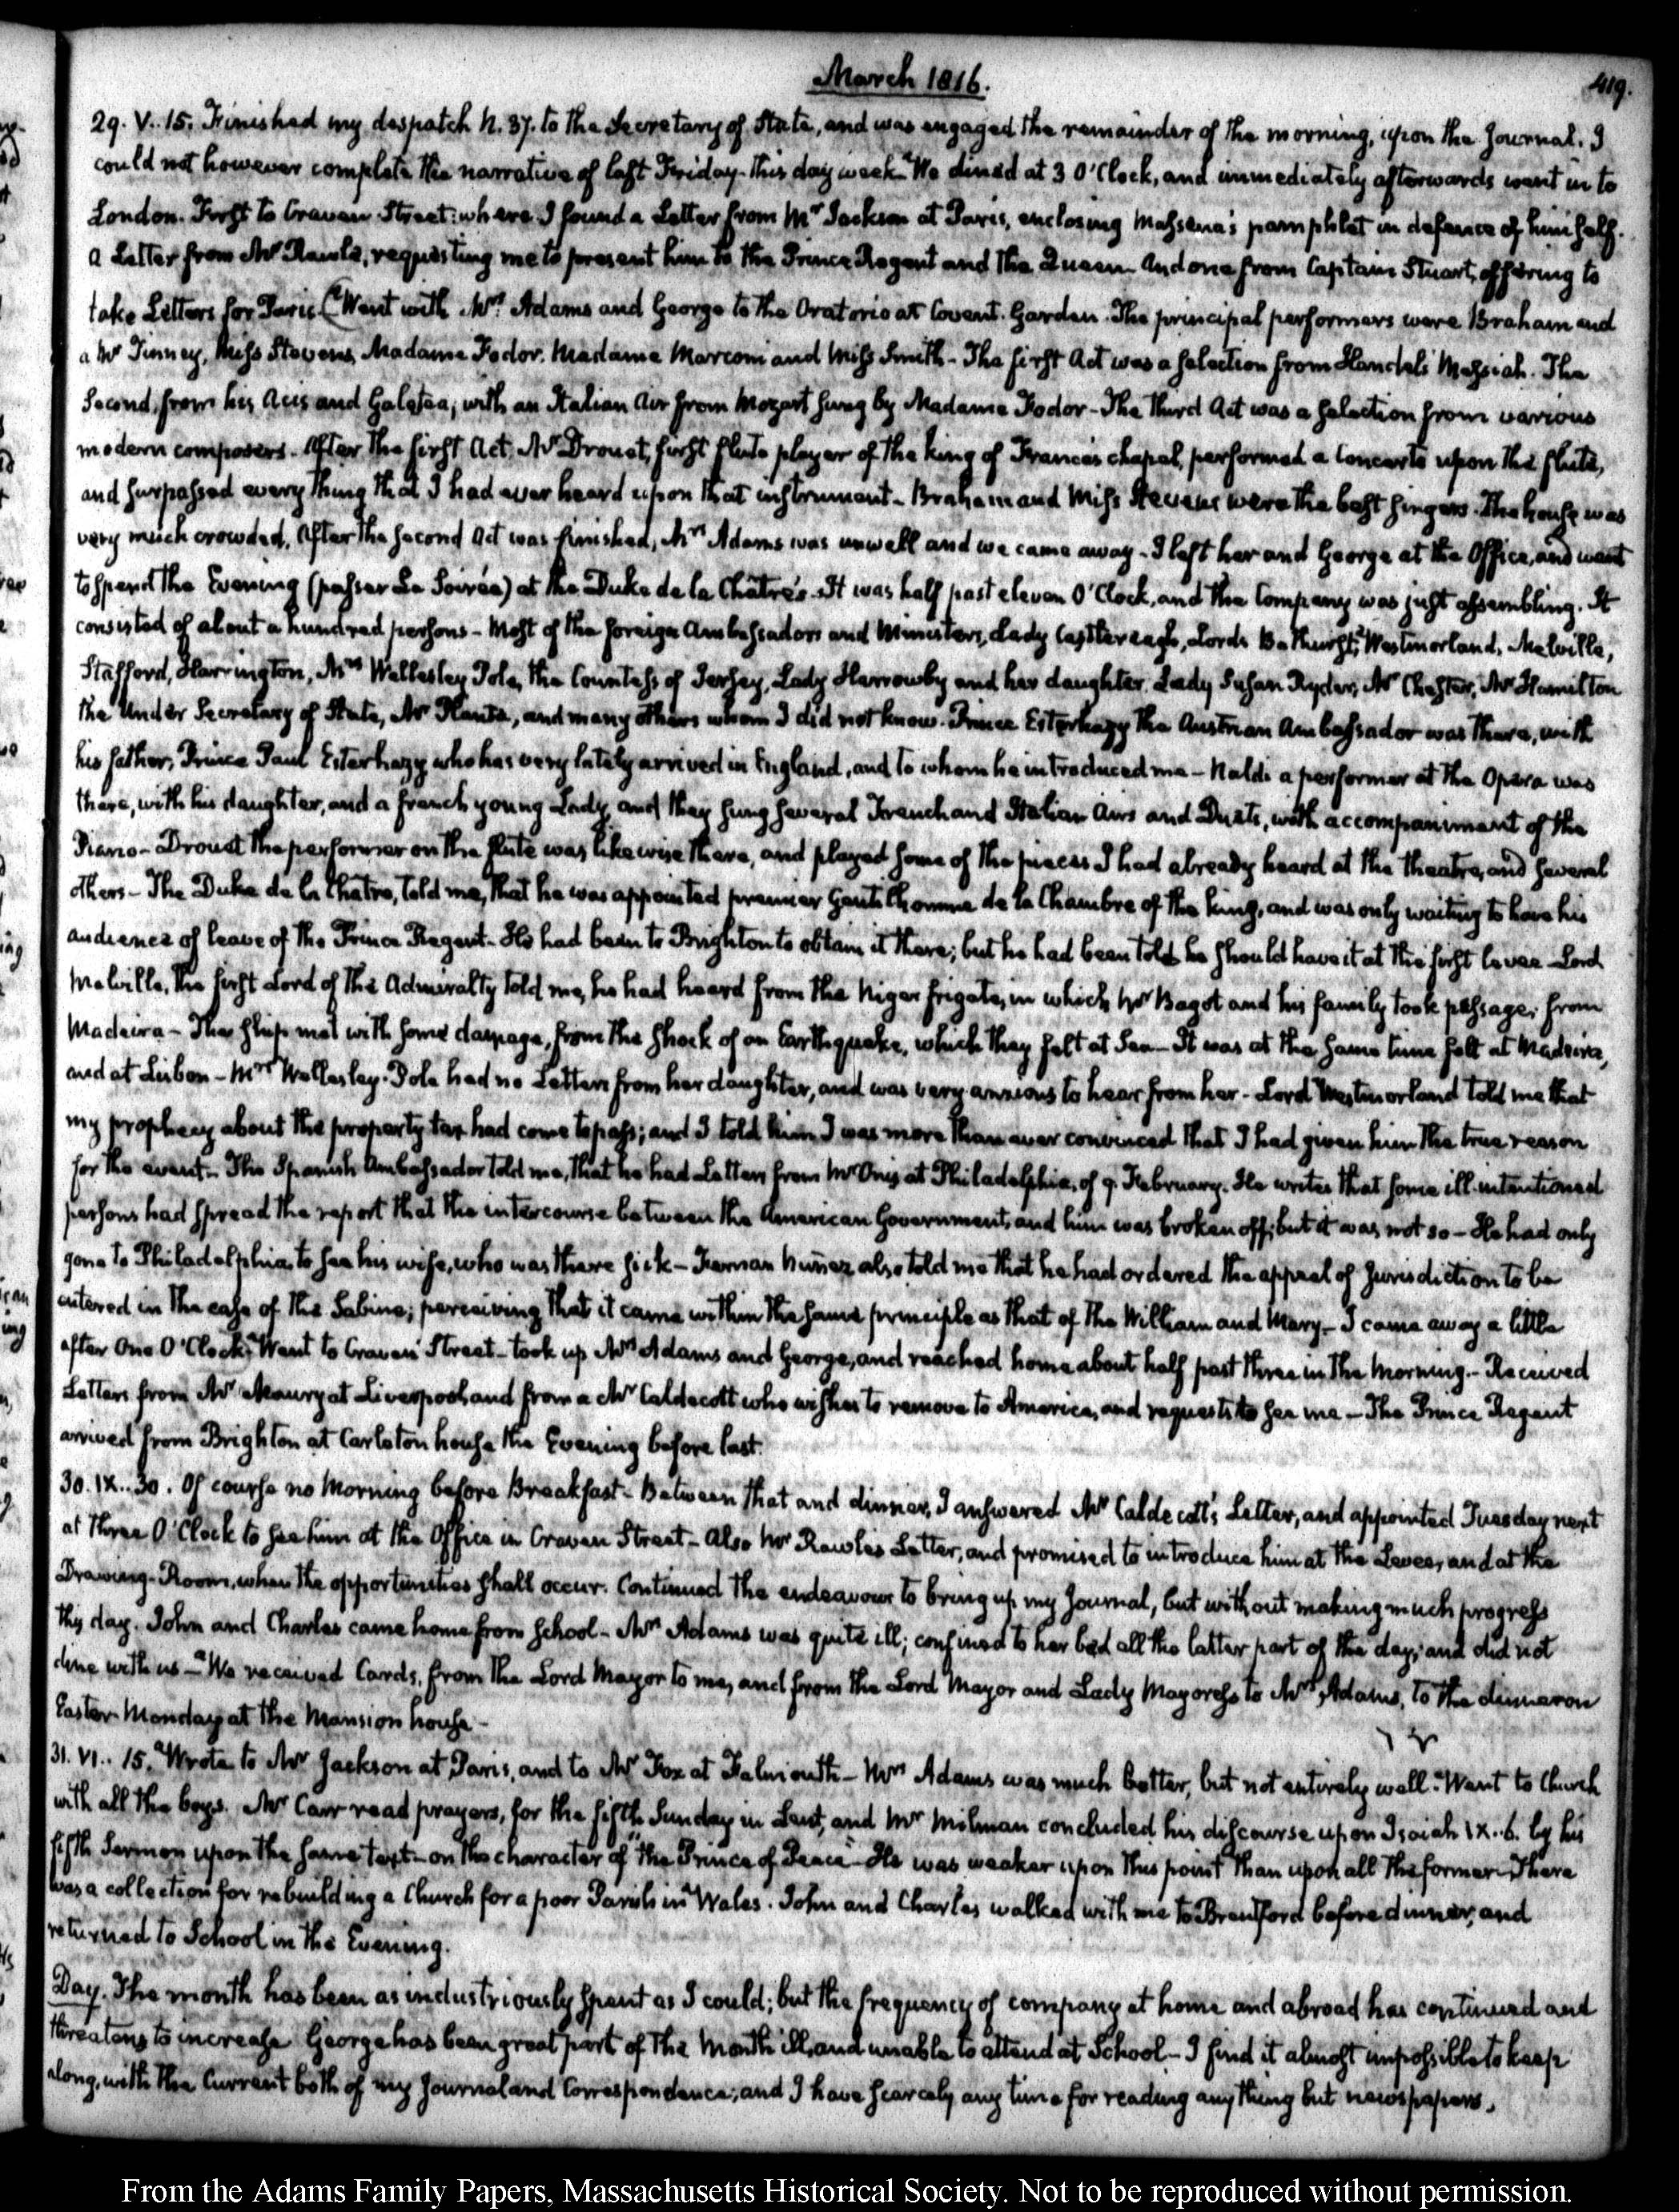 March 1816.
419.
29. V.. 15. Finished my despatch N. 37. to the Secretary of State, and was engaged the remainder of the morning, upon the Journal. I
could not however complete the narrative of last Friday this day week. We dined at 3 O'Clock, and immediately afterwards went in to
London. First to Craven Street: where I found a Letter from Mr Jackson at Paris, enclosing Massena's pamphlet in defence of himself.
a Letter from Mr Rawle, requesting me to present him to the Prince Regent and the Queen. And one from Captain Stuart, offering to
take Letters for Paris. Went with Mrs Adams and George to the Oratorio at Covent-Garden. The principal performers were Braham and
a Mr Tinney, Miss Stevens, Madame Fodor, Madame Marconi and Miss Smith - The first Act was a selection from Handel's Messiah. The
Second, from his Acis and Galatea, with an Italian Air from Mozart sung by Madame Fodor - The third Act was a selection from various
modern composers. After the first Act, Mr Drouet, first flute player of the king of France's chapel, performed a Concerto upon the flute,
and surpassed every thing that I had ever heard upon that instrument - Braham and Miss Stevens were the best singers. The house was
very much crowded. After the second Act was finished, Mrs Adams was unwell and we came away - I left her and George at the Office, and went
to spend the Evening (passer La Soirée) at the Duke de la Châtre's. It was half past eleven O'Clock, and the Company was just assembling. It
consisted of about a hundred persons - Most of the foreign Ambassadors and Ministers, Lady Castlereagh, Lords Bathurst, Westmorland, Melville,
Stafford, Harrington, Mrs Wellesley Pole, the Countess of Jersey, Lady Harrowby and her daughter Lady Susan Ryder, Mr Chester, Mr Hamilton
the Under Secretary of State, Mr Planta, and many others whom I did not know. Prince Esterhazy the Austrian Ambassador was there, with
his father, Prince Paul Esterhazy who has very lately arrived in England, and to whom he introduced me - Naldi a performer at the Opera was
there, with his daughter, and a french young Lady, and they sung several French and Italian Airs and Duets, with accompaniment of the
Piano - Drouet the performer on the flute was likewise there, and played some of the pieces I had already heard at the theatre, and several
others - The Duke de la Chatre, told me, that he was appointed premier Gentilhomme de la Chambre of the King, and was only waiting to have his
audience of leave of the Prince Regent. He had been to Brighton to obtain it there; but he had been told he should have it at the first levee - Lord
Melville, the first Lord of the Admiralty told me, he had heard from the Niger frigate, in which Mr Bagot and his family took passage, from
Madeira - The ship met with some damage, from the shock of an Earthquake, which they felt at Sea - It was at the same time felt at Madeira,
and at Lisbon - Mrs Wellesley-Pole had no Letters from her daughter, and was very anxious to hear from her - Lord Westmorland told me that
my prophecy about the property tax had come to pass; and I told him I was more than ever convinced that I had given him the true reason
for the event - The Spanish Ambassador told me, that he had Letters from Mr Onis at Philadelphia, of 9. February. He writes that some ill intentioned
persons had spread the report that the intercourse between the American Government, and him was broken off; but it was not so - He had only
gone to Philadelphia to see his wife, who was there sick - Fernan Nuñez also told me that he had ordered the appeal of Jurisdiction to be
entered in the case of the Sabine; perceiving that it came within the same principle as that of the William and Mary - I came away a little
after One O'Clock. Went to Craven Street - took up Mrs Adams and George, and reached home about half past three in the Morning. - Received
Letters from Mr Maury at Liverpool and from a Mr Caldecott who wishes to remove to America, and requests to see me - The Prince Regent
arrived from Brighton at Carleton house the Evening before last.
30. IX.. 30. Of course no Morning before Breakfast - Between that and dinner, I answered Mr Caldecott's Letter, and appointed Tuesday next
at three O'Clock to see him at the Office in Craven Street - Also Mr Rawle's Letter, and promised to introduce him at the Levee, and at the
Drawing-Room, when the opportunities shall occur. Continued the endeavour to bring up my Journal, but without making much progress
this day. John and Charles came home from School - Mrs Adams was quite ill; confined to her bed all the latter part of the day; and did not
dine with us - We received Cards, from the Lord Mayor to me, and from the Lord Mayor and Lady Mayoress to Mrs Adams, to the dinner on
Easter Monday at the Mansion house -
31. VI.. 15. Wrote to Mr Jackson at Paris, and to Mr Fox at Falmouth - Mrs Adams was much better, but not entirely well. Went to Church
with all the boys. Mr Carr read prayers, for the fifth Sunday in Lent, and Mr Milman concluded his discourse upon Isaiah IX..6. by his
fifth Sermon upon the same text - on the character of "the Prince of Peace" - He was weaker upon this point than upon all the former - There
was a collection for rebuilding a Church for a poor Parish in Wales. John and Charles walked with me to Brentford before dinner, and
returned to School in the Evening.
Day. The month has been as industriously spent as I could; but the frequency of company at home and abroad has continued and
threatens to increase. George has been great part of the Month ill, and unable to attend at School - I find it almost impossible to keep
along, with the Current both of my Journal and Correspondence; and I have scarcely any time for reading any thing but newspapers.
From the Adams Family Papers, Massachusetts Historical Society. Not to be reproduced without permission.